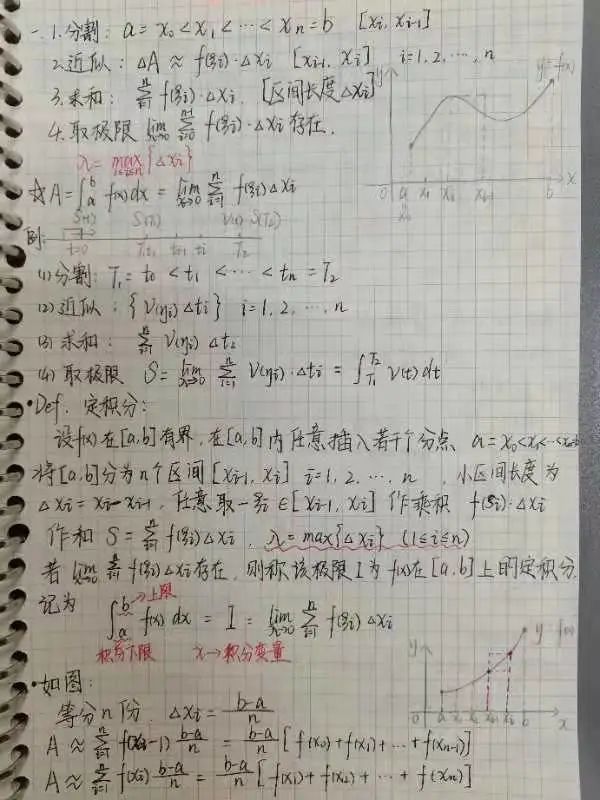 一. 1.分割: a = x₀ < x₁ < ⋯ < xₙ = b [xᵢ, xᵢ₋₁]
2.近似: ΔA ≈ f(ξᵢ)·Δxᵢ [xᵢ₋₁, xᵢ] i=1,2,⋯,n
3.求和: Σⁿᵢ₌₁ f(ξᵢ)·Δxᵢ. [区间长度Δxᵢ]
4.取极限 lim_{λ→0} Σⁿᵢ₌₀ f(ξᵢ)·Δxᵢ 存在.
λ = max_{1≤i≤n}{Δxᵢ}
y
y=f(x)
0 a x₁ xᵢ xᵢ₊₁ b x
x₀
☆A = ∫ₐᵇ f(x)dx = lim_{λ→0} Σⁿᵢ₌₁ f(ξᵢ)Δxᵢ
S(T₁) V(t) S(T₂)
例:
t=0 T₁,t₁ tᵢ₋₁ tᵢ T₂
(1)分割: T₁ = t₀ < t₁ < ⋯ < tₙ = T₂
(2)近似: {V(ηᵢ)Δtᵢ} i=1,2,⋯,n
(3)求和: Σⁿᵢ₌₁ V(ηᵢ)Δt₂
(4)取极限 S = lim_{λ→0} Σⁿᵢ₌₁ V(ηᵢ)·Δtᵢ = ∫_{T₁}^{T₂} V(t)dt
•Def. 定积分:
设f(x)在[a,b]有界,在[a,b]内任意插入若干个分点 a=x₀<x₁<⋯<xₙ=b
将[a,b]分为n个区间[xᵢ₋₁, xᵢ] i=1,2,⋯,n,小区间长度为
Δxᵢ = xᵢ-xᵢ₋₁,任意取一ξᵢ∈[xᵢ₋₁, xᵢ] 作乘积 f(ξᵢ)·Δxᵢ
作和 S = Σⁿᵢ₌₁ f(ξᵢ)Δxᵢ, λ = max{Δxᵢ} (1≤i≤n)
若 lim_{λ→0} Σⁿᵢ₌₁ f(ξᵢ)Δxᵢ存在,则称该极限I为f(x)在[a,b]上的定积分,
记为
→上限
∫ₐᵇ f(x) dx = I = lim_{λ→0} Σⁿᵢ₌₁ f(ξᵢ)Δxᵢ
积分下限 x→积分变量
y
y=f(x)
0 a x₁ x₂ xᵢ₋₁ xᵢ b x
•如图:
等分n份. Δxᵢ = (b-a)/n
A ≈ Σⁿᵢ₌₁ f(xᵢ-1) (b-a)/n = (b-a)/n [f(x₀)+f(x₁)+⋯+f(xₙ₋₁)]
A ≈ Σⁿᵢ₌₁ f(xᵢ) (b-a)/n = (b-a)/n [f(x₁)+f(x₂)+⋯+f(xₙ)]